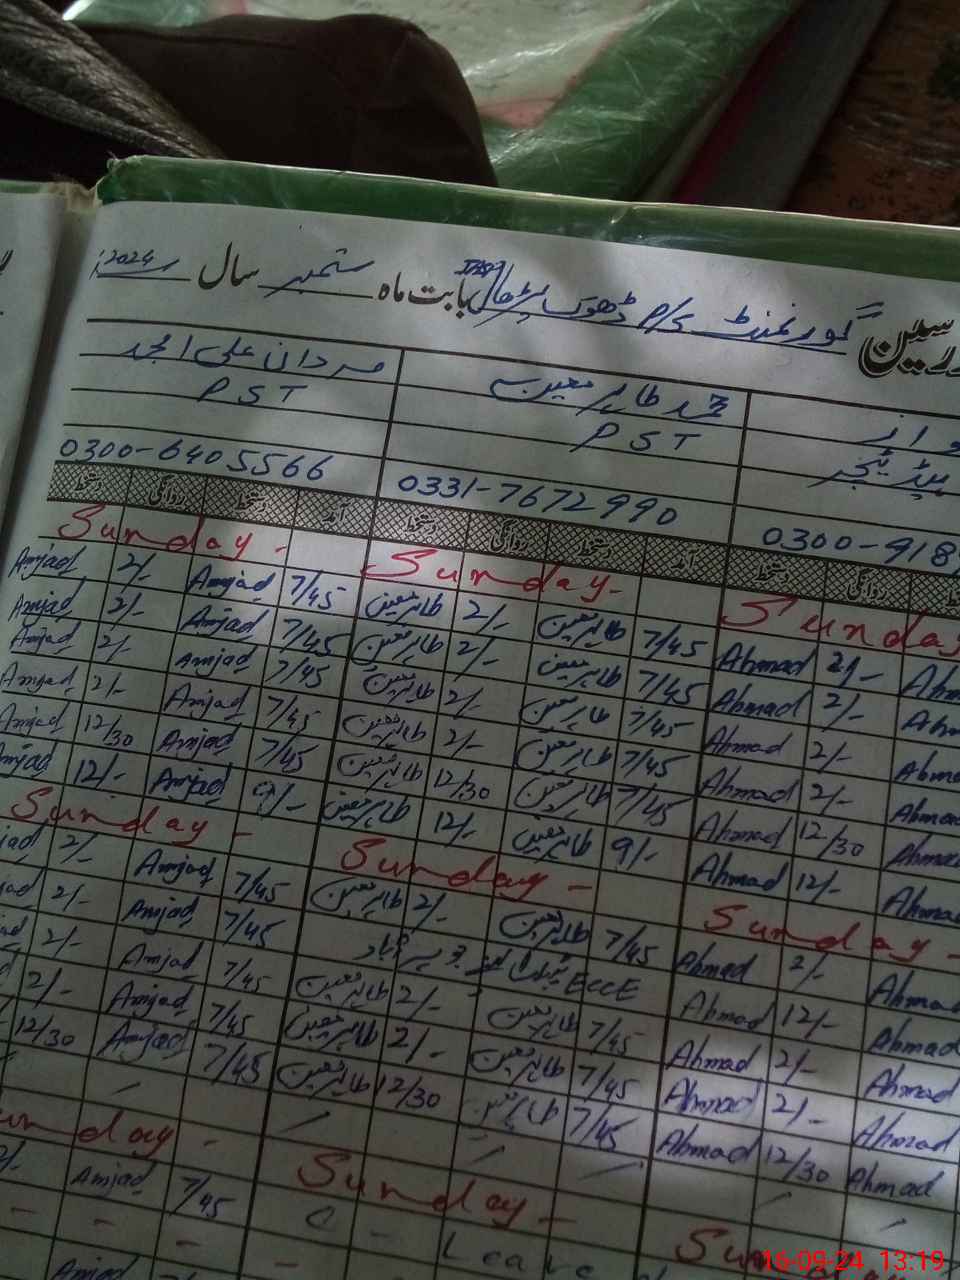 رسین گورنمنٹ P/S ڈھوک بابت ماہ ستمبر سال 2024
محمد طاہر معین مردان علی امجد
PST PST
0300-6405566
0331-7672990
0300-418
دستخط روانگی دستخط آمد دستخط روانگی دستخط آمد دستخط روانگی
Sunday - Sunday - Sunday
Amjad 2/- Amjad 7/45 طاہر معین 2/- طاہر معین 7/45 Ahmad 2/- Ahm
Amjad 2/- Amjad 7/45 طاہر معین 2/- طاہر معین 7/45 Ahmad 2/- Ahm
Amjad 2/- Amjad 7/45 طاہر معین 2/- طاہر معین 7/45 Ahmad 2/- Ahma
Amjad 2/- Amjad 7/45 طاہر معین 2/- طاہر معین 7/45 Ahmad 2/- Ahmad
Amjad 12/30 Amjad 7/45 طاہر معین 12/30 طاہر معین 7/45 Ahmad 12/30 Ahmad
Amjad 12/- Amjad 9/- طاہر معین 12/- طاہر معین 9/- Ahmad 12/- Ahmad
Sunday - Sunday - Sunday -
jad 2/- Amjad 7/45 طاہر معین 2/- طاہر معین 7/45 Ahmad 2/- Ahmad
jad 2/- Amjad 7/45 ECCE Ahmad 12/- Ahmad
ad 2/- Amjad 7/45 طاہر معین 2/- طاہر معین 7/45 Ahmad 2/- Ahmad
d 2/- Amjad 7/45 طاہر معین 2/- طاہر معین 7/45 Ahmad 2/- Ahmad
12/30 Amjad 7/45 طاہر معین 12/30 طاہر معین 7/45 Ahmad 12/30 Ahmad
unday - Sunday - Su
2/- Amjad 7/45 Leave
Amjad
16-09-24 13:19